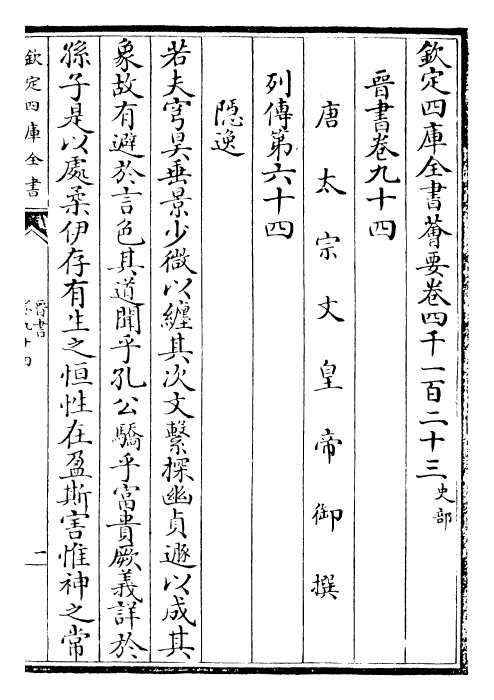 欽定四庫全書薈要卷四千一百二十三史部
晉書卷九十四
唐太宗文皇帝御撰
列傳第六十四
隱逸
若夫穹昊垂景少微以纏其次文繫探幽貞遯以成其
象故有避於言色其道聞乎孔公驕乎富貴厥義詳於
孫子是以處柔伊存有生之恒性在盈斯害惟神之常
欽定四庫全書
晉書
卷九十四
一